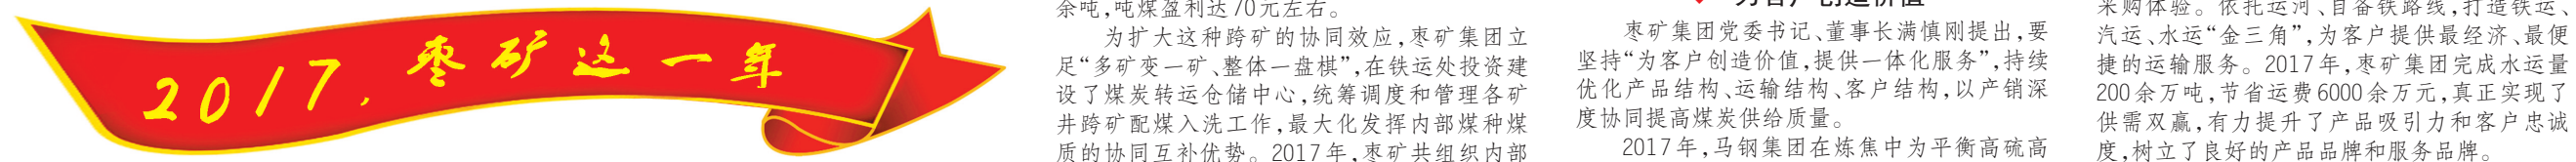 2017,枣矿这一年
余吨,吨煤盈利达70元左右。
为扩大这种跨矿的协同效应,枣矿集团立
足“多矿变一矿、整体一盘棋”,在铁运处投资建
设了煤炭转运仓储中心,统筹调度和管理各矿
井跨矿配煤入洗工作,最大化发挥内部煤种煤
质的协同互补优势。2017年,枣矿共组织内部
枣矿集团党委书记、董事长满慎刚提出,要
坚持“为客户创造价值,提供一体化服务”,持续
优化产品结构、运输结构、客户结构,以产销深
度协同提高煤炭供给质量。
2017年,马钢集团在炼焦中为平衡高硫高
采购体验。依托运河、自备铁路线,打造铁运、
汽运、水运“金三角”,为客户提供最经济、最便
捷的运输服务。2017年,枣矿集团完成水运量
200余万吨,节省运费6000余万元,真正实现了
供需双赢,有力提升了产品吸引力和客户忠诚
度,树立了良好的产品品牌和服务品牌。